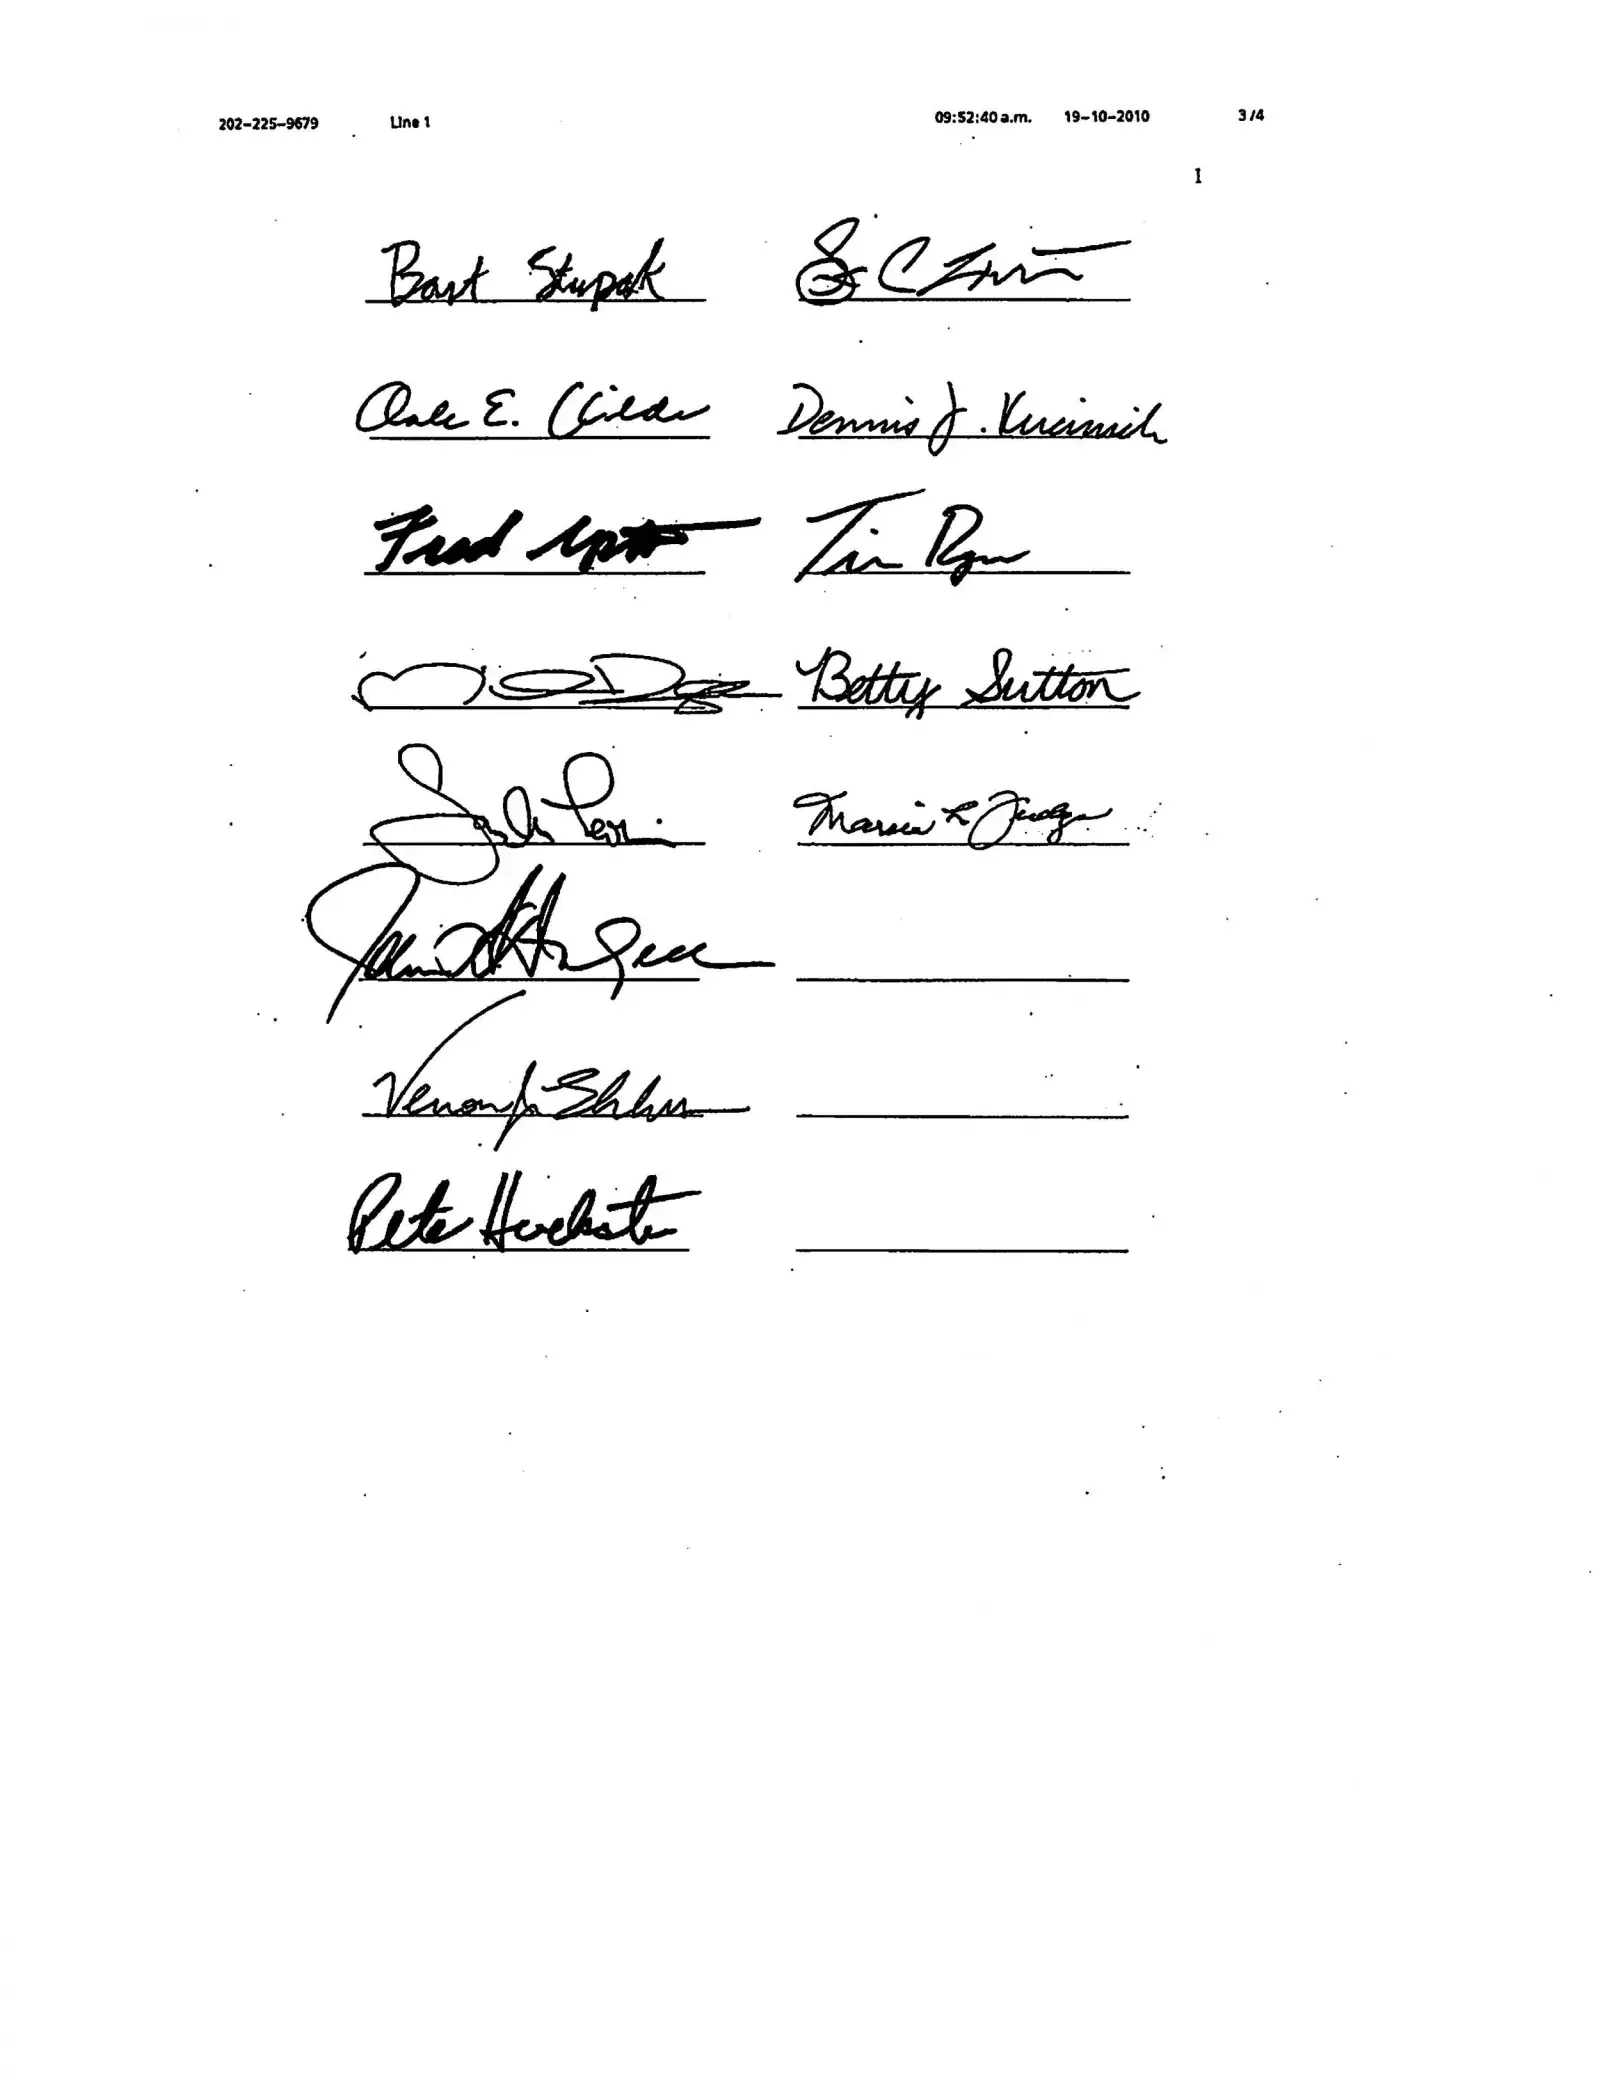 202-225-9679 Line 1 09:52:40 a.m. 19-10-2010 3/4
1
Bart Stupak
Dale E. Kildee Dennis J. Kucinich
Fred Upton Tim Ryan
Betty Sutton
Marcia L Fudge
Vernon J. Ehlers
Pete Hoekstra